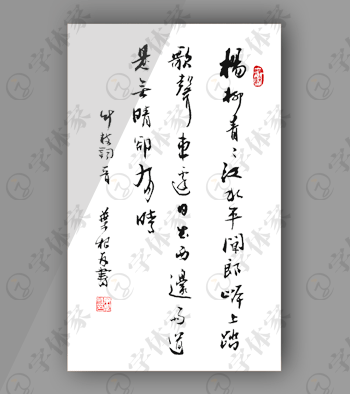 楊柳青〻江水平聞郎岸上踏
歌聲東邊日出西邊雨道
是无晴卻有晴
竹枝詞一首 葉根友書
字体家